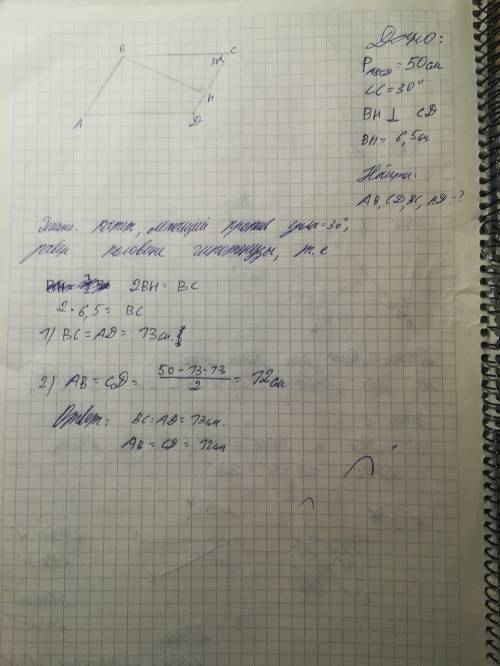 B C
30°
H
A D
Дано:
P ABCD = 50см
∠C = 30°
BH ⊥ CD
BH = 6,5см
Найти:
AB, CD, BC, AD - ?
Катет, лежащий против угла = 30°,
равен половине гипотенузы, т.е
2BH = BC
2 · 6,5 = BC
1) BC = AD = 13см.
2) AB = CD = 50 - 13 - 13 / 2 = 12см
Ответ: BC = AD = 13см.
AB = CD = 12см